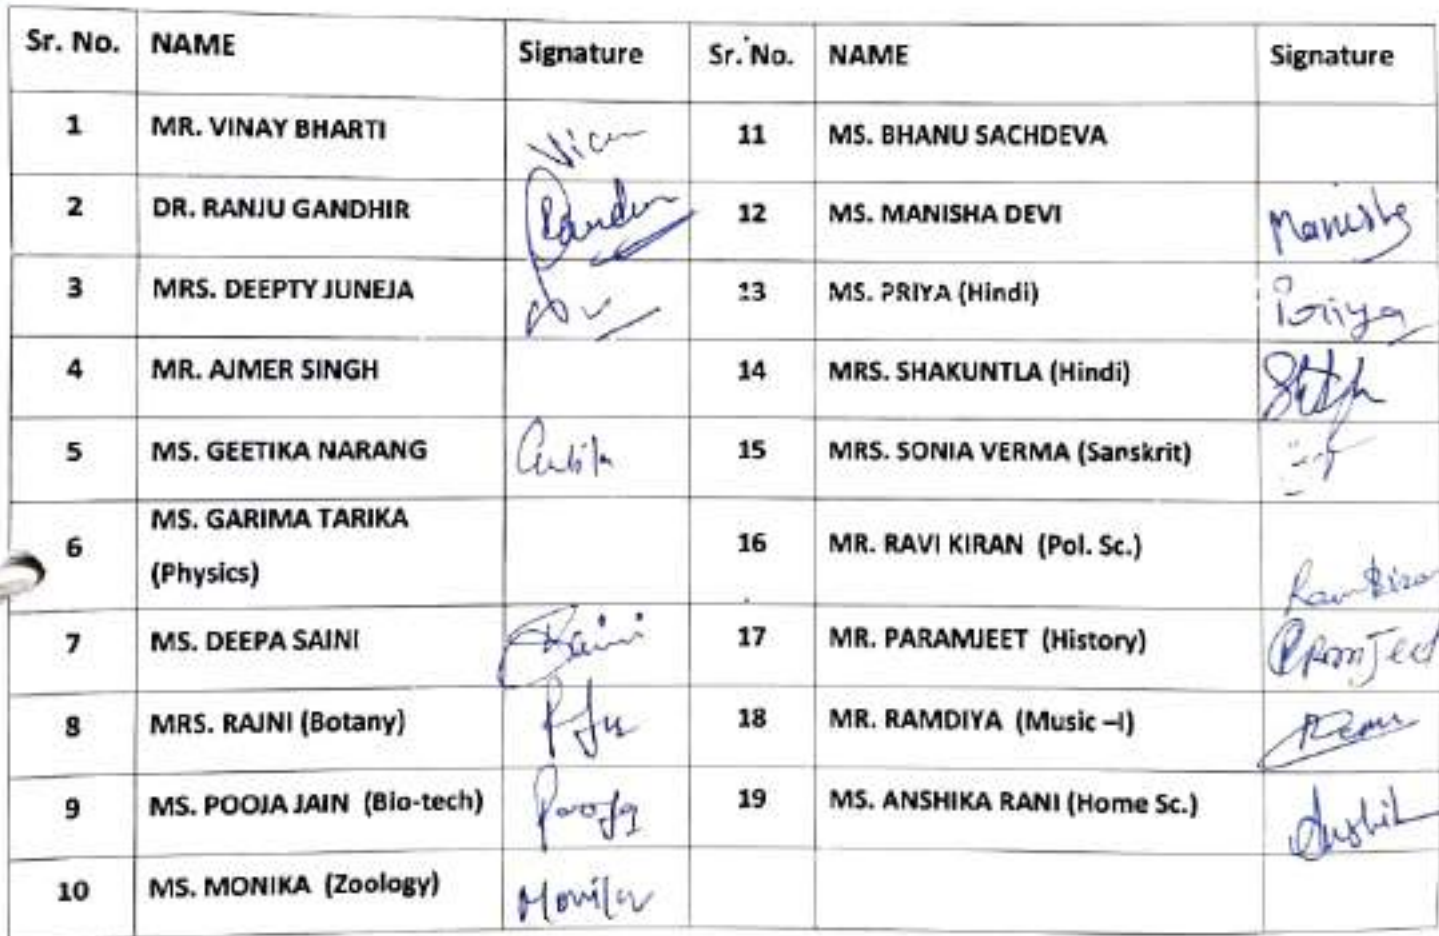 Sr. No. NAME Signature Sr. No. NAME Signature
1 MR. VINAY BHARTI 11 MS. BHANU SACHDEVA
2 DR. RANJU GANDHIR 12 MS. MANISHA DEVI Manisha
3 MRS. DEEPTY JUNEJA 13 MS. PRIYA (Hindi) Priya
4 MR. AJMER SINGH 14 MRS. SHAKUNTLA (Hindi)
5 MS. GEETIKA NARANG 15 MRS. SONIA VERMA (Sanskrit)
6 MS. GARIMA TARIKA
(Physics) 16 MR. RAVI KIRAN (Pol. Sc.)
7 MS. DEEPA SAINI Saini 17 MR. PARAMJEET (History)
8 MRS. RAJNI (Botany) 18 MR. RAMDIYA (Music –I)
9 MS. POOJA JAIN (Bio-tech) Pooja 19 MS. ANSHIKA RANI (Home Sc.)
10 MS. MONIKA (Zoology) Monika